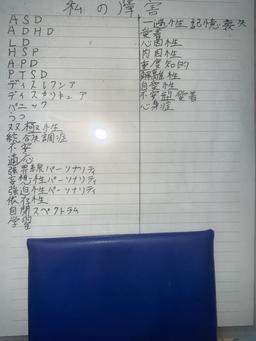 私の障害
ASD
ADHD
LD
HSP
APD
PTSD
ディスレクシア
ディスカリキュア
パニック
うつ
双極性
統合失調症
不安
適心
境界線パーソナリティ
妄想性パーソナリティ
強迫性パーソナリティ
依存性
自閉スペクトラム
学習
一過性記憶喪失
愛着
心因性
内因性
重度知的
解離性
自愛性
不安型愛着
心身症